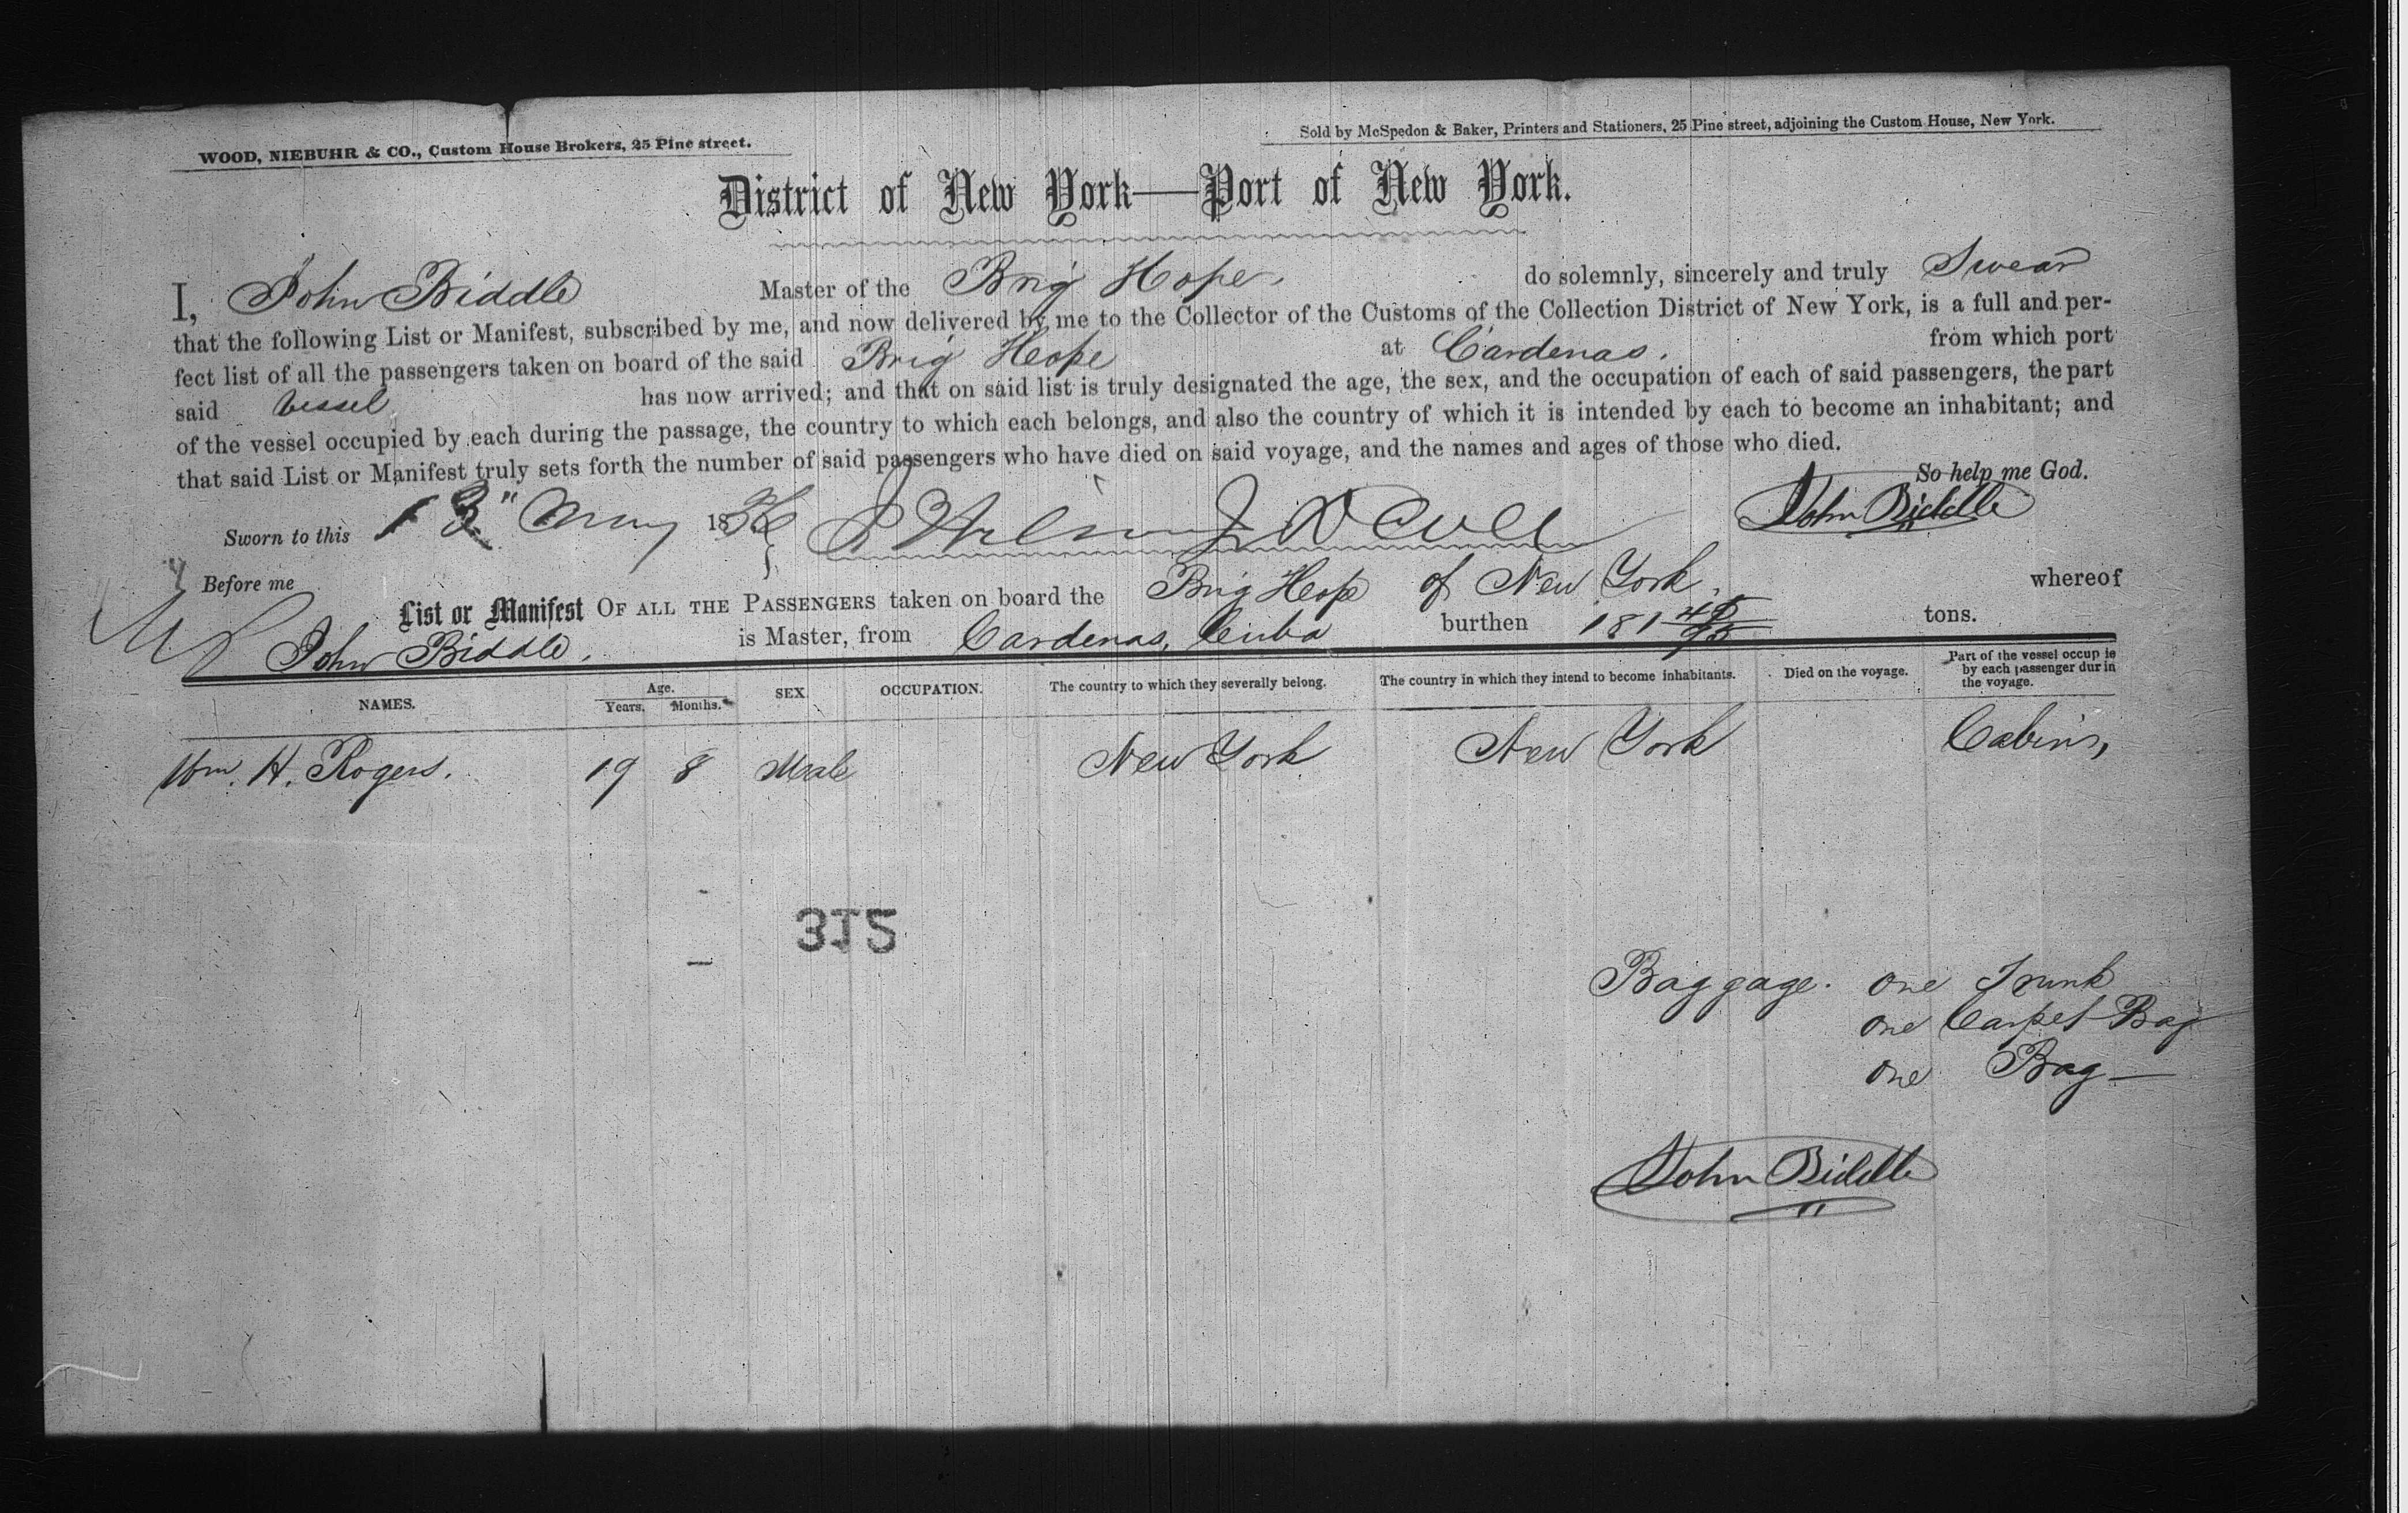 WOOD, NIEBUHR & CO., Custom House Brokers, 25 Pine street.
Sold by McSpedon & Baker, Printers and Stationers, 25 Pine street, adjoining the Custom House, New York.
District of New York—Port of New York.
I, John Biddle Master of the Brig Hope. do solemnly, sincerely and truly Swear
that the following List or Manifest, subscribed by me, and now delivered by me to the Collector of the Customs of the Collection District of New York, is a full and per-
fect list of all the passengers taken on board of the said Brig Hope at Cardenas. from which port
said vessel has now arrived; and that on said list is truly designated the age, the sex, and the occupation of each of said passengers, the part
of the vessel occupied by each during the passage, the country to which each belongs, and also the country of which it is intended by each to become an inhabitant; and
that said List or Manifest truly sets forth the number of said passengers who have died on said voyage, and the names and ages of those who died.
So help me God.
Sworn to this 13" May 18 John Biddle
Before me
List or Manifest OF ALL THE PASSENGERS taken on board the Brig Hope of New York. whereof
John Biddle. is Master, from Cardenas, Cuba burthen 181 tons.
NAMES. Age. Years. Months. SEX. OCCUPATION. The country to which they severally belong. The country in which they intend to become inhabitants. Died on the voyage. Part of the vessel occup ie by each passenger dur in the voyage.
Wm. H. Rogers. 19 8 Male New York New York Cabin,
312
Baggage. one Trunk
one Carpet Bag
one Bag—
John Biddle